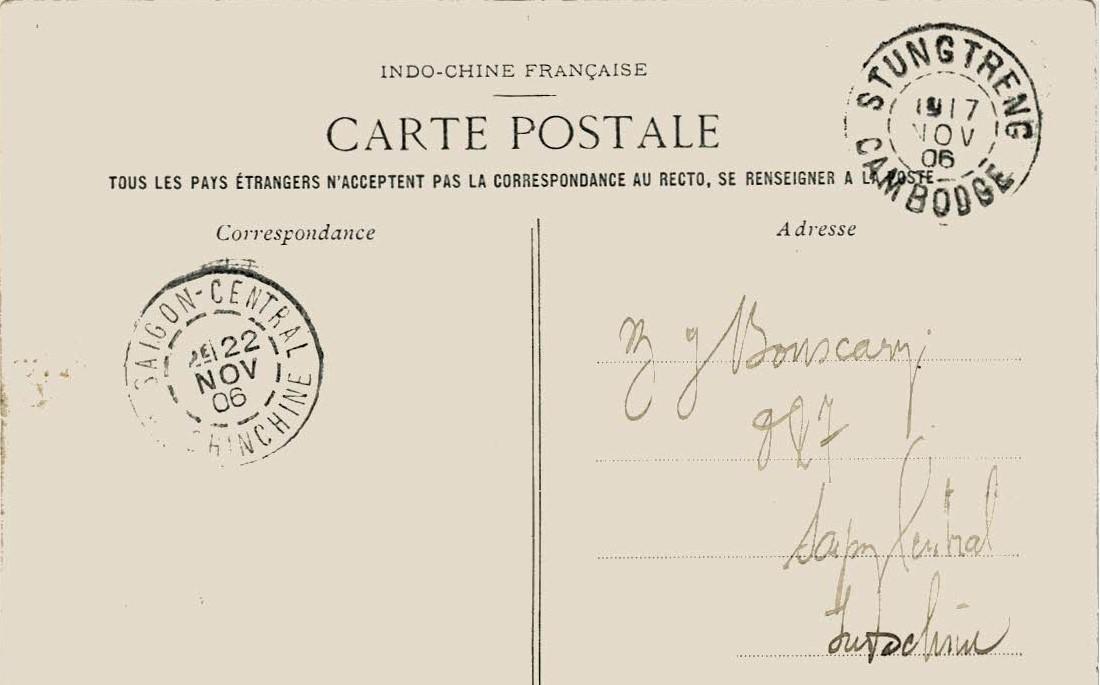 INDO-CHINE FRANÇAISE
CARTE POSTALE
TOUS LES PAYS ÉTRANGERS N'ACCEPTENT PAS LA CORRESPONDANCE AU RECTO, SE RENSEIGNER A LA POSTE
STUNGTRENG
17
NOV
06
CAMBODGE
Correspondance
SAIGON-CENTRAL
22
NOV
06
CHINCHINE
Adresse
Central
Indochine